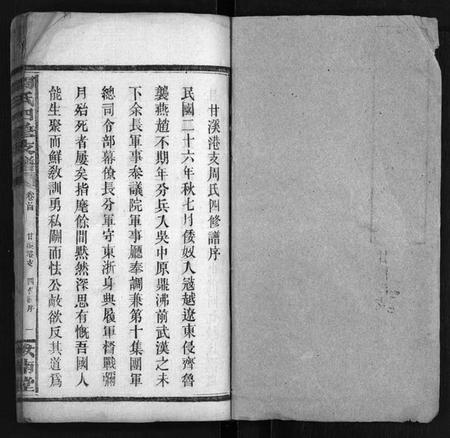 甘溪港支周氏四修譜序
民國二十六年秋七月倭奴入寇越遼東侵齊魯
襲燕趙不期年分兵入吳中原鼎沸前武漢之未
下余長軍事參議院軍事廳奉調兼第十集團軍
總司令部幕僚長分軍守東浙身與履軍督戰彌
月殆死者屢矣指麾餘間黙然深思有慨吾國人
能生聚而鮮敎訓勇私鬭而怯公敵欲反其道爲
卷首
甘溪港支
四修譜序
一